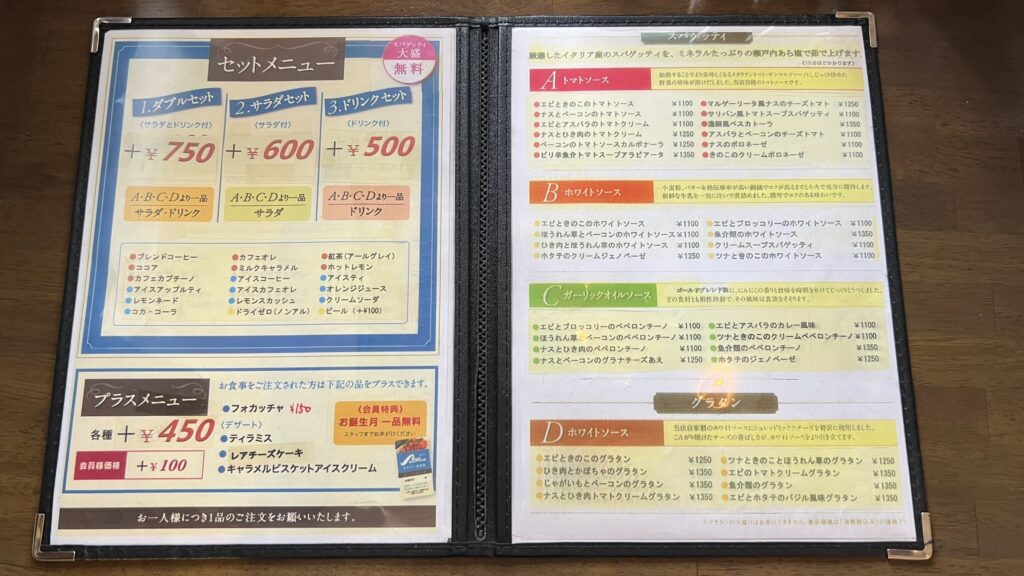 セットメニュー
スパゲッティ
大盛
無料
1.ダブルセット
〈サラダとドリンク付〉
+¥750
A・B・C・Dより一品
サラダ・ドリンク
2.サラダセット
〈サラダ付〉
+¥600
A・B・C・Dより一品
サラダ
3.ドリンクセット
〈ドリンク付〉
+¥500
A・B・C・Dより一品
ドリンク
●ブレンドコーヒー ●カフェオレ ●紅茶(アールグレイ)
●ココア ●ミルクキャラメル ●ホットレモン
●カフェカプチーノ ●アイスコーヒー ●アイスティ
●アイスアップルティ ●アイスカフェオレ ●オレンジジュース
●レモンネード ●レモンスカッシュ ●クリームソーダ
●コカ・コーラ ●ドライゼロ(ノンアル) ●ビール(+¥100)
プラスメニュー
各種 +¥450
会員様価格 +¥100
お食事をご注文された方は下記の品をプラスできます。
●フォカッチャ ¥150
〈デザート〉
●ティラミス
●レアチーズケーキ
●キャラメルビスケットアイスクリーム
《会員特典》
お誕生月 一品無料
スタッフまでお声がけください
お一人様につき1品のご注文をお願いいたします。
スパゲッティ
厳選したイタリア産のスパゲッティを、ミネラルたっぷりの瀬戸内あら塩で茹で上げます
(10分ほどかかります)
A トマトソース
野菜の旨味が溶けだしました。当店自慢のトマトソースです。
●エビときのこのトマトソース ¥1100 ●マルゲーリータ風ナスのチーズトマト ¥1250
●ナスとベーコンのトマトソース ¥1100 ●サリバン風トマトスープスパゲッティ ¥1100
●エビとアスパラのトマトクリーム ¥1100 ●漁師風ペスカトーラ ¥1350
●ナスとひき肉のトマトクリーム ¥1250 ●アスパラとベーコンのチーズトマト ¥1100
●ベーコンのトマトソースカルボナーラ ¥1250 ●ナスのボロネーゼ ¥1100
●ピリ辛魚介トマトスープアラビアータ ¥1350 ●きのこのクリームボロネーゼ ¥1100
B ホワイトソース
小麦粉、バターを熱伝導率が高い銅鍋でコクが出るまでとろ火で充分に維持します。
新鮮な牛乳を一気に注いで煮詰めました。濃厚でコクのある味わいです。
●エビときのこのホワイトソース ¥1100 ●エビとブロッコリーのホワイトソース ¥1100
●ほうれん草とベーコンのホワイトソース ¥1100 ●魚介類のホワイトソース ¥1350
●ひき肉とほうれん草のホワイトソース ¥1100 ●クリームスープスパゲッティ ¥1100
●ホタテのクリームジェノベーゼ ¥1250 ●ツナときのこのホワイトソース ¥1100
C ガーリックオイルソース
ゴールドブレンド油に、にんにくの香りと旨味を時間をかけてじっくりとうつしました。
どの食材とも相性抜群で、その風味は食欲をそそります。
●エビとブロッコリーのペペロンチーノ ¥1100 ●エビとアスパラのカレー風味 ¥1100
●ほうれん草とベーコンのペペロンチーノ ¥1100 ●ツナときのこのクリームペペロンチーノ ¥1100
●ナスとひき肉のペペロンチーノ ¥1100 ●魚介類のペペロンチーノ ¥1350
●ナスとベーコンのグラナチーズあえ ¥1250 ●ホタテのジェノベーゼ ¥1250
グラタン
D ホワイトソース
当店自家製のホワイトソースにシュレッドミックスチーズを贅沢に使用しました。
こんがり焼けたチーズの香ばしさが、ホワイトソースをより引き立てます。
●エビときのこのグラタン ¥1250 ●ツナときのことほうれん草のグラタン ¥1250
●ひき肉とかぼちゃのグラタン ¥1350 ●エビのトマトクリームグラタン ¥1350
●じゃがいもとベーコンのグラタン ¥1350 ●魚介類のグラタン ¥1350
●ナスとひき肉トマトクリームグラタン ¥1350 ●エビとホタテのバジル風味グラタン ¥1350